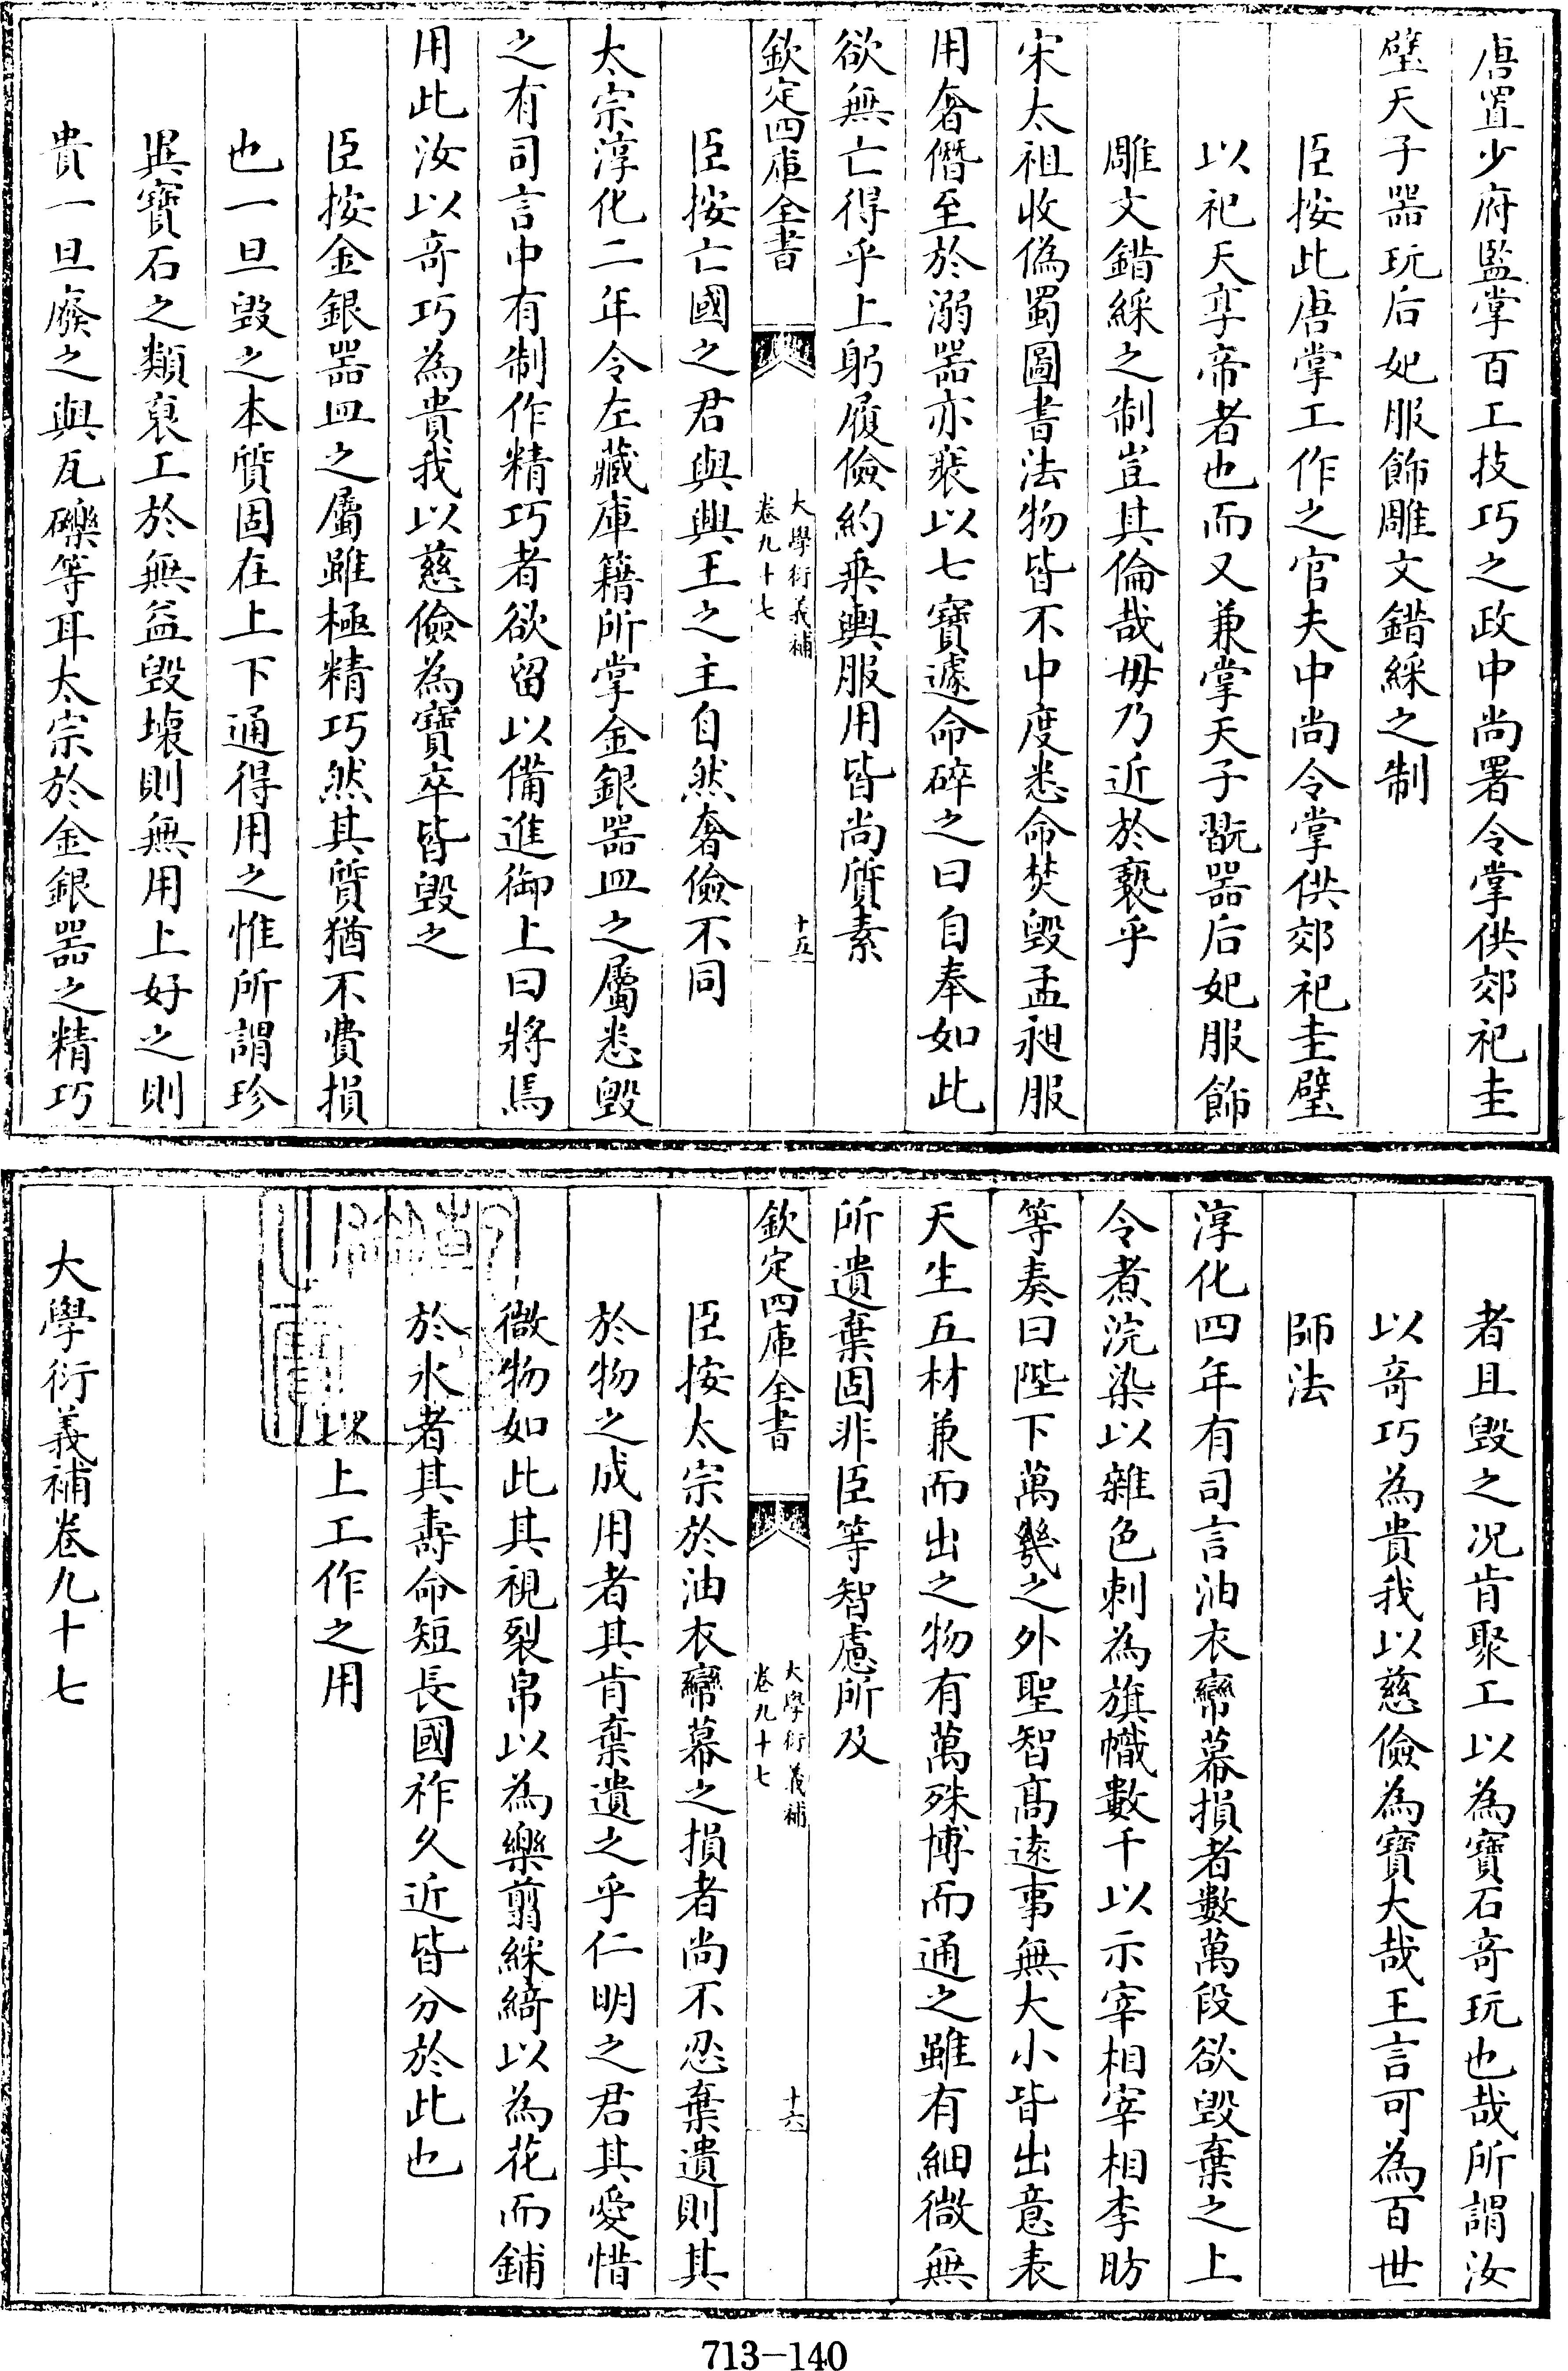 唐置少府監掌百工技巧之政中尚署令掌供郊祀圭
璧天子器玩后妃服飾雕文錯綵之制
臣按此唐掌工作之官夫中尚令掌供郊祀圭璧
以祀天享帝者也而又兼掌天子翫器后妃服飾
雕文錯綵之制豈其倫哉毋乃近於褻乎
宋太祖收偽蜀圖書法物皆不中度悉命焚毀孟昶服
用奢僭至於溺器亦裝以七寶遽命碎之曰自奉如此
欲無亡得乎上躬履儉約乘輿服用皆尚質素
欽定四庫全書
大學衍義補
卷九十七
十五
臣按亡國之君與興王之主自然奢儉不同
太宗淳化二年令左藏庫籍所掌金銀器皿之屬悉毀
之有司言中有制作精巧者欲留以備進御上曰將焉
用此汝以奇巧為貴我以慈儉為寶卒皆毀之
臣按金銀器皿之屬雖極精巧然其質猶不費損
也一旦毀之本質固在上下通得用之惟所謂珍
異寶石之類裒工於無益毀壞則無用上好之則
貴一旦廢之與瓦礫等耳太宗於金銀器之精巧
者且毀之况肯聚工以為寶石奇玩也哉所謂汝
以奇巧為貴我以慈儉為寶大哉王言可為百世
師法
淳化四年有司言油衣帟幕損者數萬段欲毀棄之上
令煮浣染以雜色刺為旗幟數千以示宰相宰相李昉
等奏曰陛下萬幾之外聖智高遠事無大小皆出意表
天生五材兼而出之物有萬殊博而通之雖有細微無
所遺棄固非臣等智慮所及
欽定四庫全書
大學衍義補
卷九十七
十六
臣按太宗於油衣帟幕之損者尚不忍棄遺則其
於物之成用者其肯棄遺之乎仁明之君其愛惜
微物如此其視裂帛以為樂剪綵綺以為花而鋪
於氷者其壽命短長國祚久近皆分於此也
以上工作之用
大學衍義補卷九十七
713-140